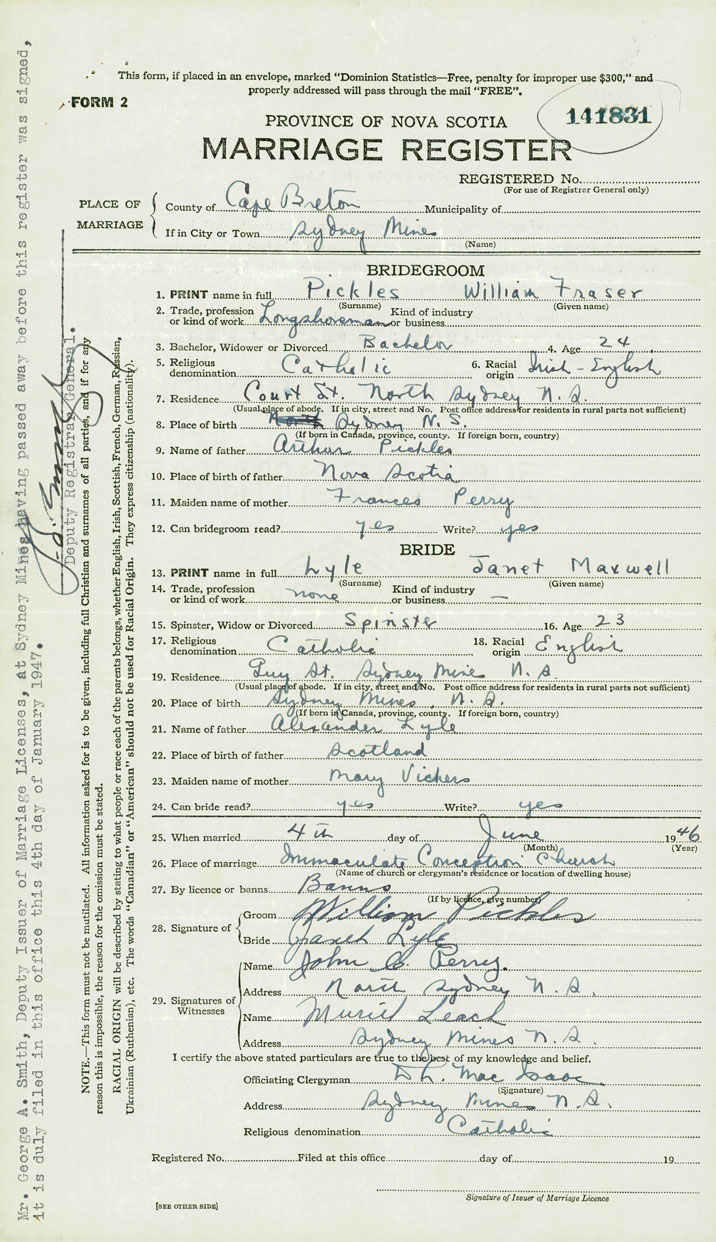 This form, if placed in an envelope, marked "Dominion Statistics—Free, penalty for improper use $300," and
properly addressed will pass through the mail "FREE".
FORM 2
141831
PROVINCE OF NOVA SCOTIA
MARRIAGE REGISTER
REGISTERED No.
(For use of Registrar General only)
PLACE OF MARRIAGE
County of Cape Breton Municipality of
If in City or Town Sydney Mines
(Name)
BRIDEGROOM
1. PRINT name in full Pickles William Fraser
(Surname) (Given name)
2. Trade, profession or kind of work Longshoreman Kind of industry or business
3. Bachelor, Widower or Divorced Bachelor 4. Age 24
5. Religious denomination Catholic 6. Racial origin Irish-English
7. Residence Court St. North Sydney N.S.
(Usual place of abode. If in city, street and No. Post office address for residents in rural parts not sufficient)
8. Place of birth North Sydney N.S.
(If born in Canada, province, county. If foreign born, country)
9. Name of father Arthur Pickles
10. Place of birth of father Nova Scotia
11. Maiden name of mother Frances Perry
12. Can bridegroom read? yes Write? yes
BRIDE
13. PRINT name in full Lyle Janet Maxwell
(Surname) (Given name)
14. Trade, profession or kind of work none Kind of industry or business —
15. Spinster, Widow or Divorced Spinster 16. Age 23
17. Religious denomination Catholic 18. Racial origin English
19. Residence Guy St. Sydney Mines N.S.
(Usual place of abode. If in city, street and No. Post office address for residents in rural parts not sufficient)
20. Place of birth Sydney Mines, N.S.
(If born in Canada, province, county. If foreign born, country)
21. Name of father Alexander Lyle
22. Place of birth of father Scotland
23. Maiden name of mother Mary Vickers
24. Can bride read? yes Write? yes
25. When married 4th day of June 1946
(Month) (Year)
26. Place of marriage Immaculate Conception Church
(Name of church or clergyman's residence or location of dwelling house)
27. By licence or banns Banns
(If by licence, give number)
28. Signature of
Groom William Pickles
Bride Janet Lyle
29. Signatures of Witnesses
Name John C. Perry.
Address North Sydney N.S.
Name Muriel Leach
Address Sydney Mines N.S.
I certify the above stated particulars are true to the best of my knowledge and belief.
Officiating Clergyman D.L. Mac Isaac
(Signature)
Address Sydney Mines N.S.
Religious denomination Catholic
Registered No. Filed at this office day of 19
Signature of Issuer of Marriage Licence
[SEE OTHER SIDE]
NOTE.—This form must not be mutilated. All information asked for is to be given, including full Christian and surnames of all parties, and if for any
reason this is impossible, the reason for the omission must be stated.
RACIAL ORIGIN will be described by stating to what people or race each of the parents belongs, whether English, Irish, Scottish, French, German, Russian,
Ukrainian (Ruthenian), etc. The words "Canadian" or "American" should not be used for Racial Origin. They express citizenship (nationality).
Mr. George A. Smith, Deputy Issuer of Marriage Licenses, at Sydney Mines having passed away before this register was signed,
it is duly filed in this office this 4th day of January 1947.
Deputy Registrar General.